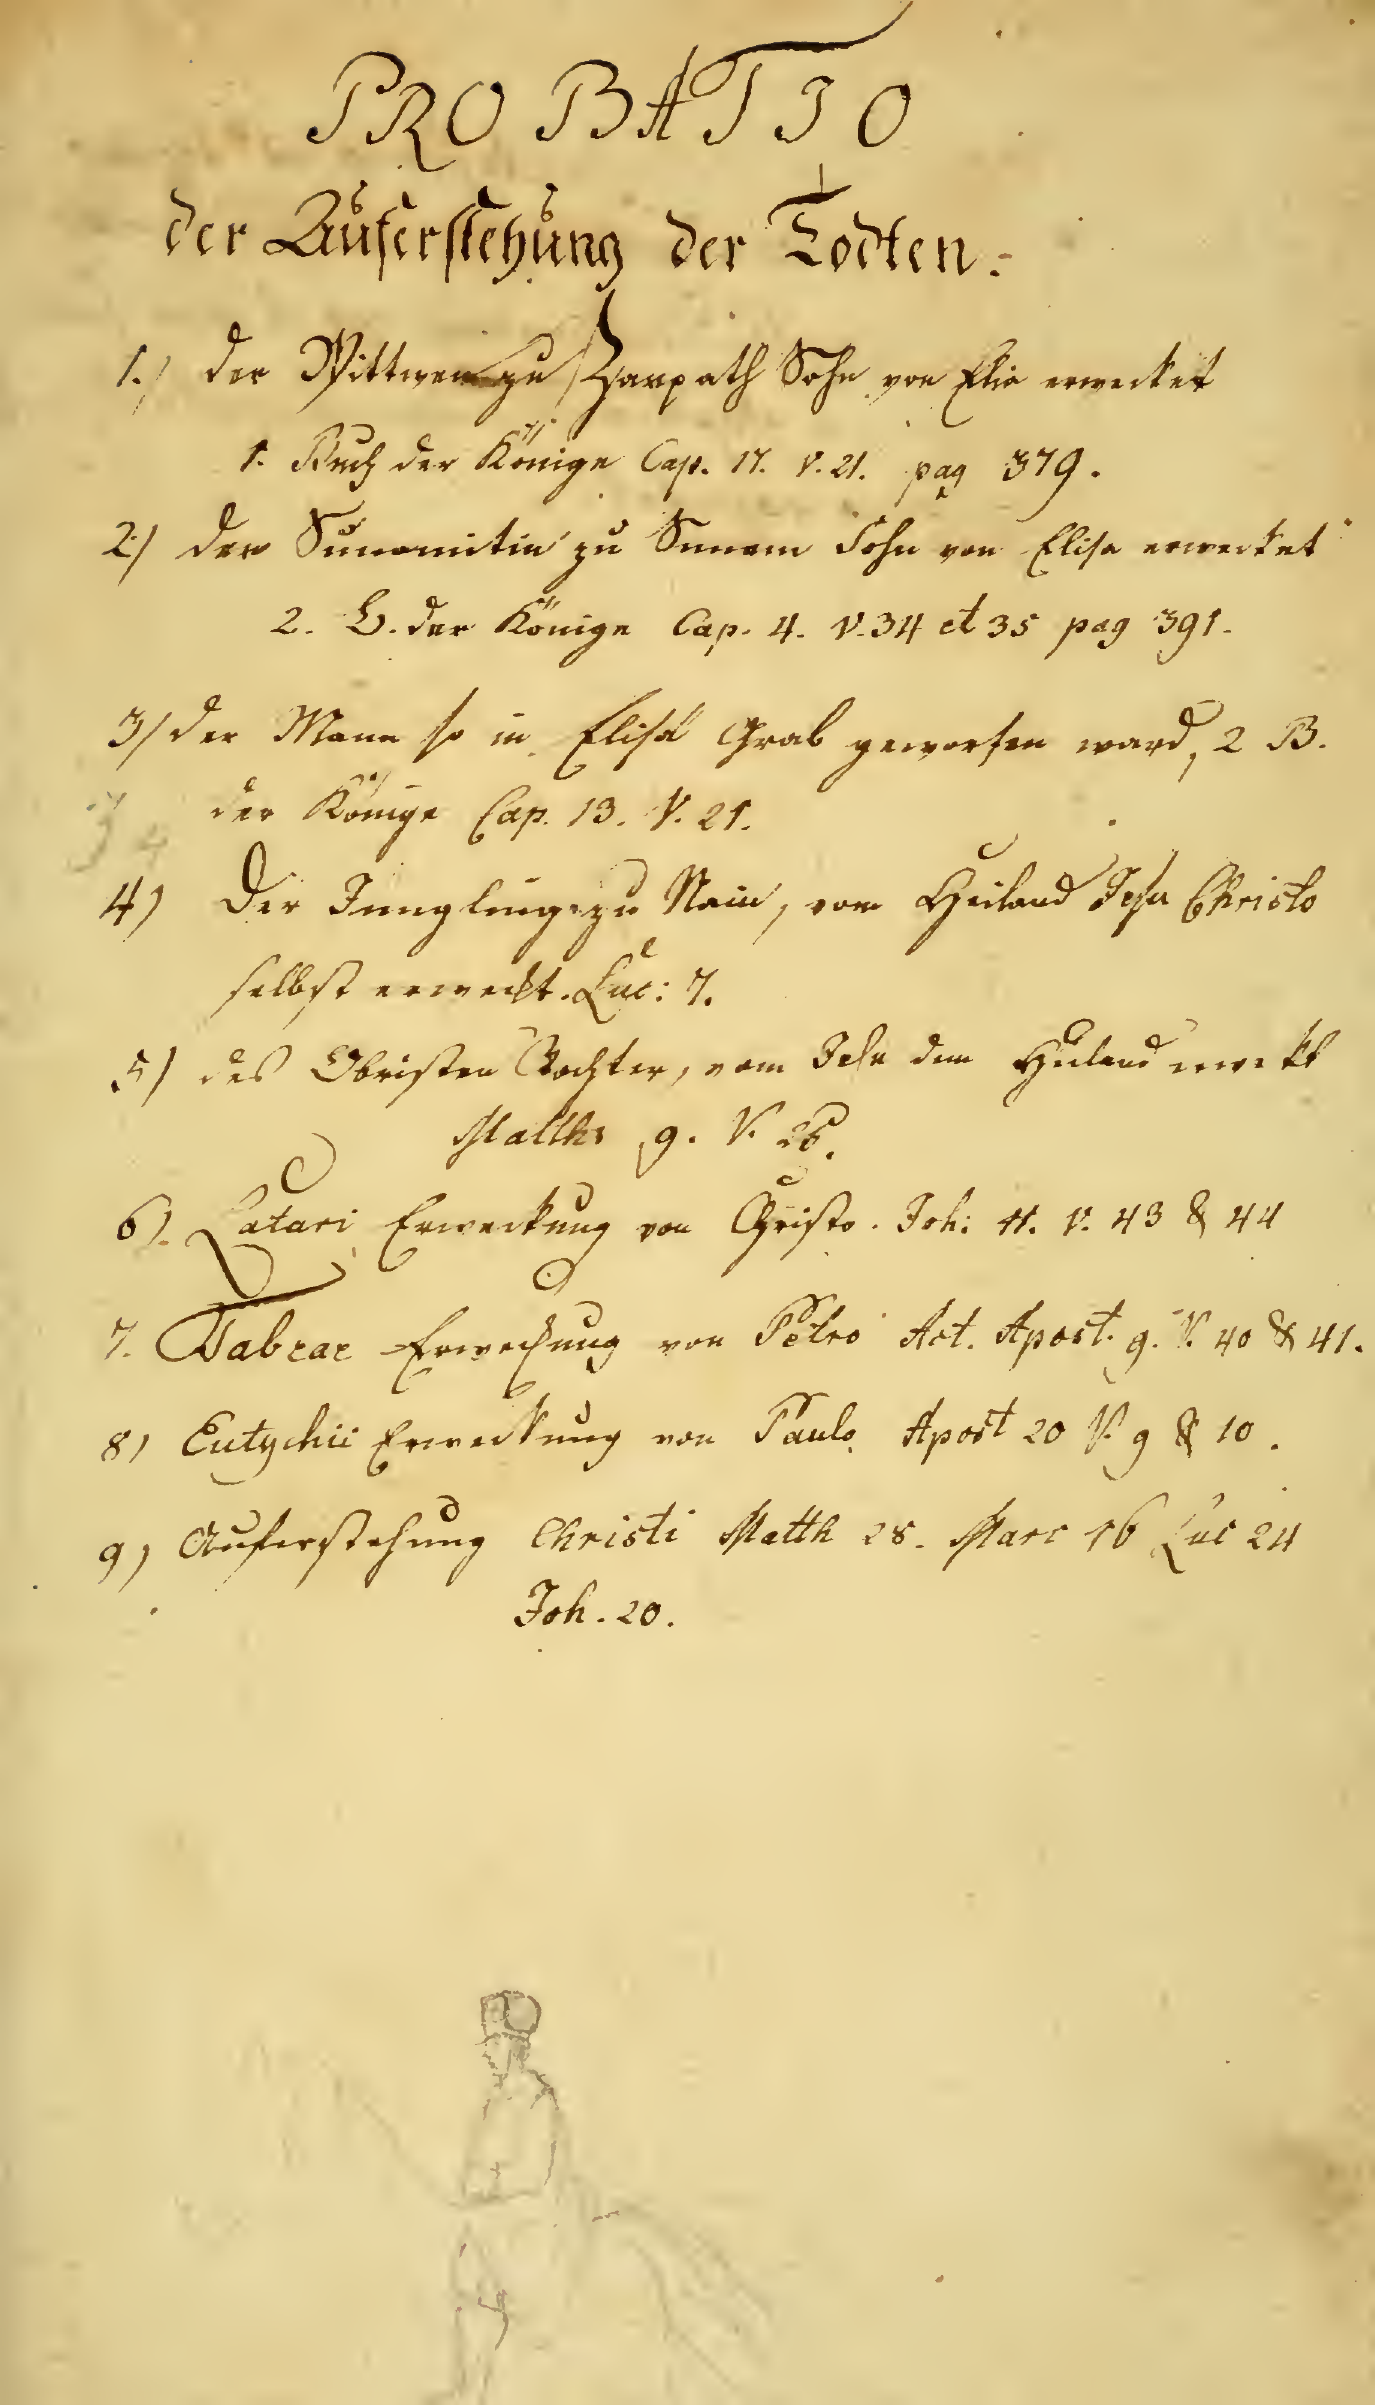 PROBATIO
der Auferstehung der Todten.
1.) der Wittwen zu Zarpath Sohn von Elia erwecket
1. Buch der Könige Cap. 17. V. 21. pag 379.
2) der Sunamitin zu Sunem Sohn von Elisa erwecket
2. B. der Könige Cap. 4. V. 34 et 35 pag 391.
3) der Mann so in Elisä Grab geworfen ward, 2 B.
der Könige Cap. 13. V. 21.
4) Der Jungling zu Nain, vom Heiland Jesu Christo
selbst erweckt. Luc: 7.
5) des Obristen Tochter, vom Jesu dem Heiland erwekt
Matth 9. V. 25.
6) Lazari Erweckung von Christo. Joh: 11. V. 43 & 44
7. Tabeae Erweckung von Petro Act. Apost. 9. V. 40 & 41.
8) Eutychii Erweckung von Paulo Apost 20 V. 9 & 10.
9) Auferstehung Christi Matth 28. Marc 16 Luc 24
Joh. 20.